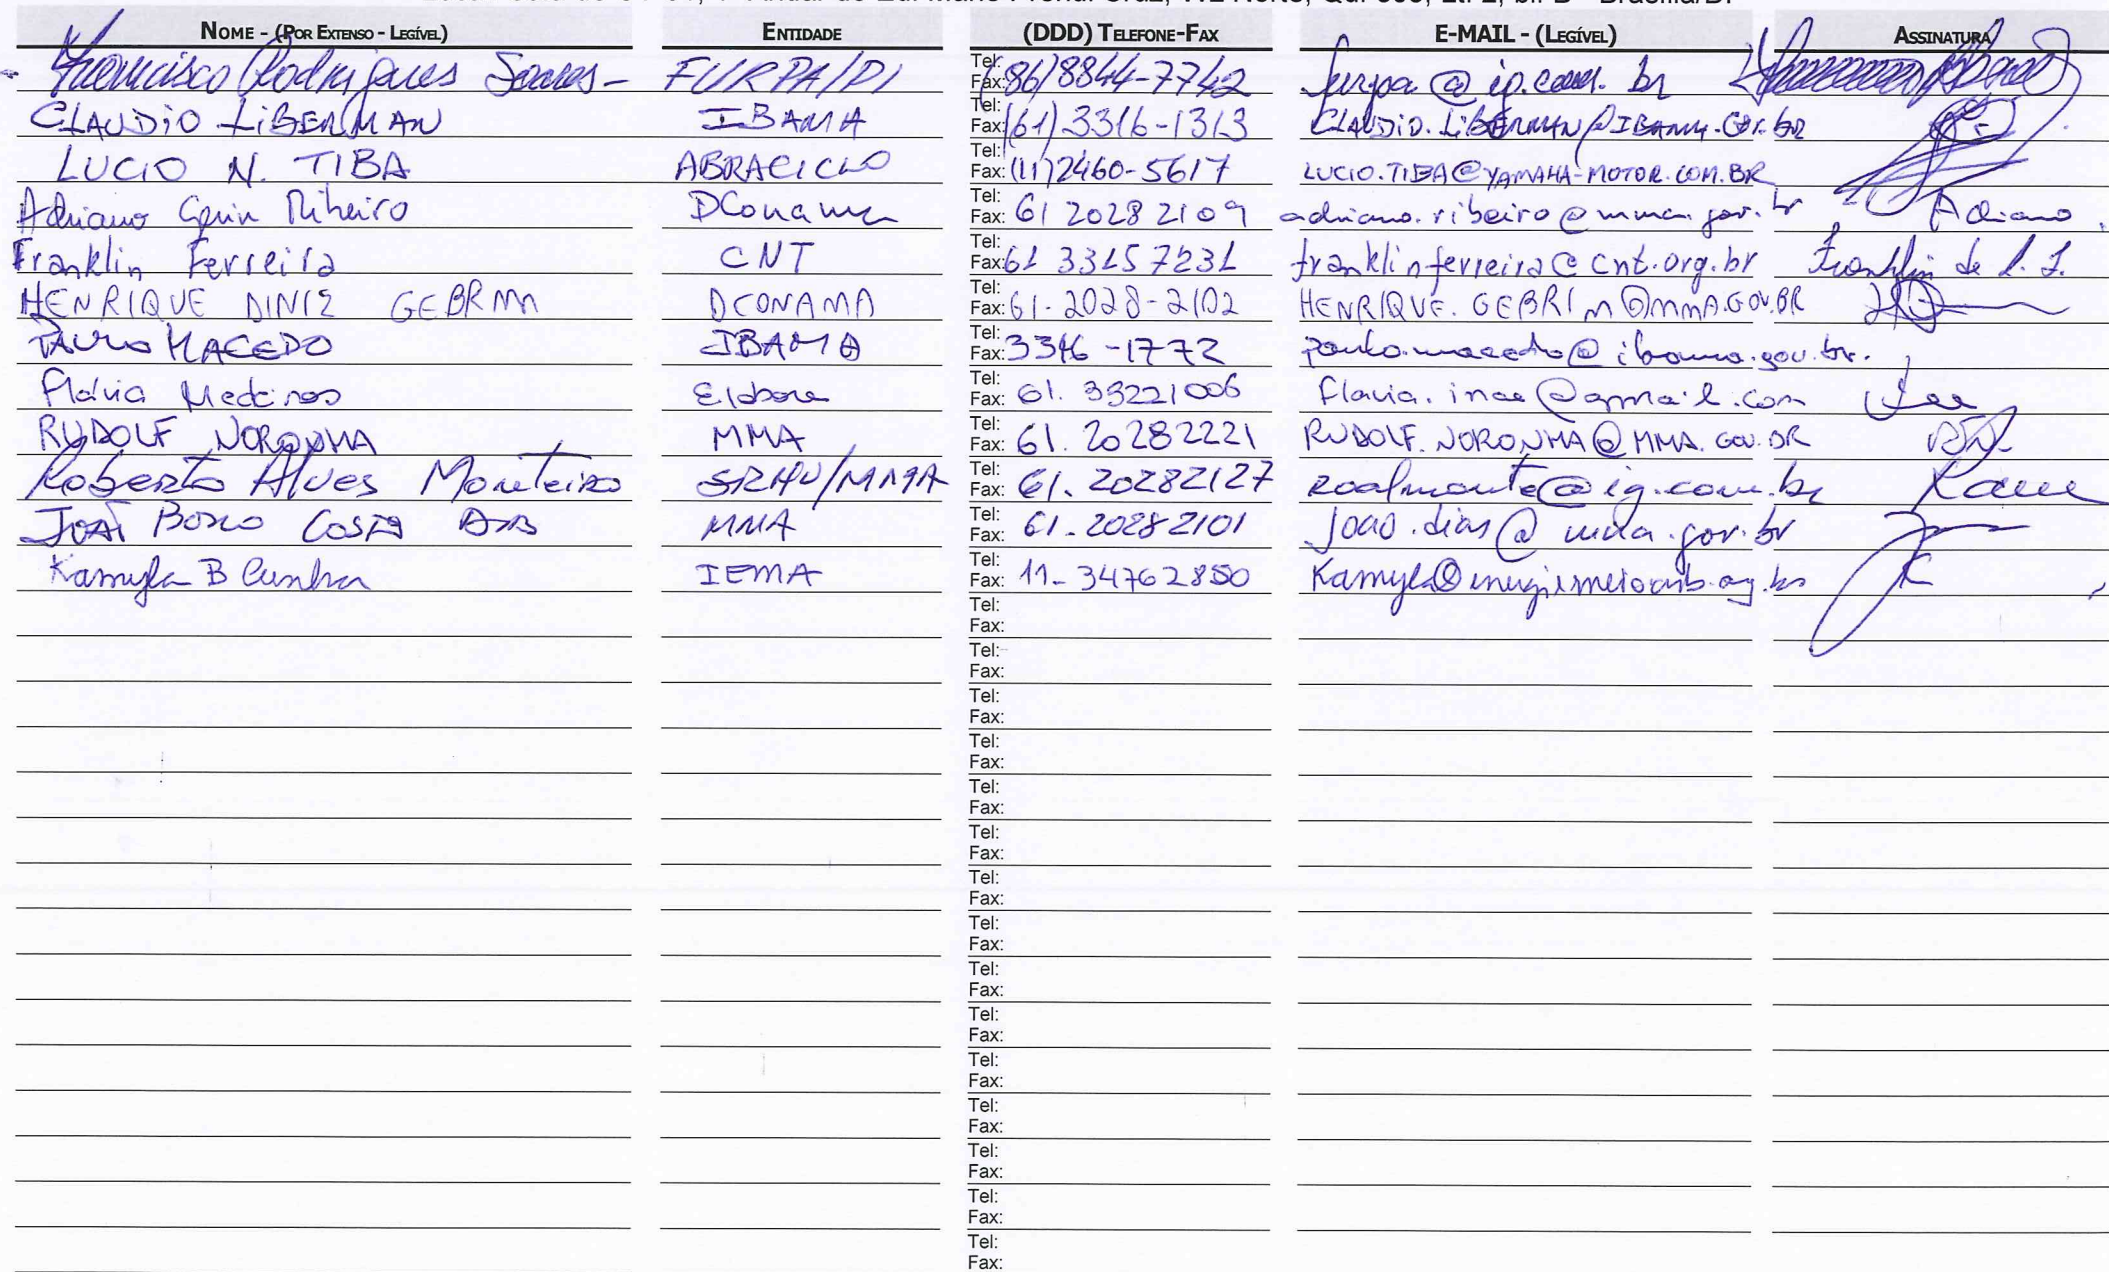 NOME - (POR EXTENSO - LEGÍVEL) ENTIDADE (DDD) TELEFONE-FAX E-MAIL - (LEGÍVEL) ASSINATURA
Francisco Rodrigues Soares - FURPA/PI Tel: Fax: (86) 8844-7742 furpa@ig.com.br
CLAUDIO LIBERMAN IBAMA Tel: Fax: (61) 3316-1313 CLAUDIO.LIBERMAN@IBAMA.GOV.BR
LUCIO N. TIBA ABRACICLO Tel: Fax: (11) 2460-5617 LUCIO.TIBA@YAMAHA-MOTOR.COM.BR
Adriano Ribeiro DConama Tel: Fax: 61 2028 2109 adriano.ribeiro@mma.gov.br Adriano
Franklin Ferreira CNT Tel: Fax: 61 3315 7231 franklinferreira@cnt.org.br Franklin de
HENRIQUE DINIZ GEBRIM DCONAMA Tel: Fax: 61-2028-2102 HENRIQUE.GEBRIM@MMA.GOV.BR
PAULO MACEDO IBAMA Tel: Fax: 3316-1772 paulo.macedo@ibama.gov.br.
Flávia Medeiros Elabore Tel: Fax: 61. 33221006 flavia.inae@gmail.com
RUDOLF NORONHA MMA Tel: Fax: 61. 20282221 RUDOLF.NORONHA@MMA.GOV.BR
Roberto Alves Monteiro SRHU/MMA Tel: Fax: 61. 20282127 roalmonte@ig.com.br
JOÃO BOSCO COSTA DIAS MMA Tel: Fax: 61-20282101 joao.dias@mma.gov.br
Kamyla B Cunha IEMA Tel: Fax: 11-34762850
Tel:
Fax:
Tel:
Fax:
Tel:
Fax:
Tel:
Fax:
Tel:
Fax:
Tel:
Fax:
Tel:
Fax:
Tel:
Fax:
Tel:
Fax:
Tel:
Fax:
Tel:
Fax:
Tel:
Fax:
Tel:
Fax:
Tel:
Fax:
Tel:
Fax: